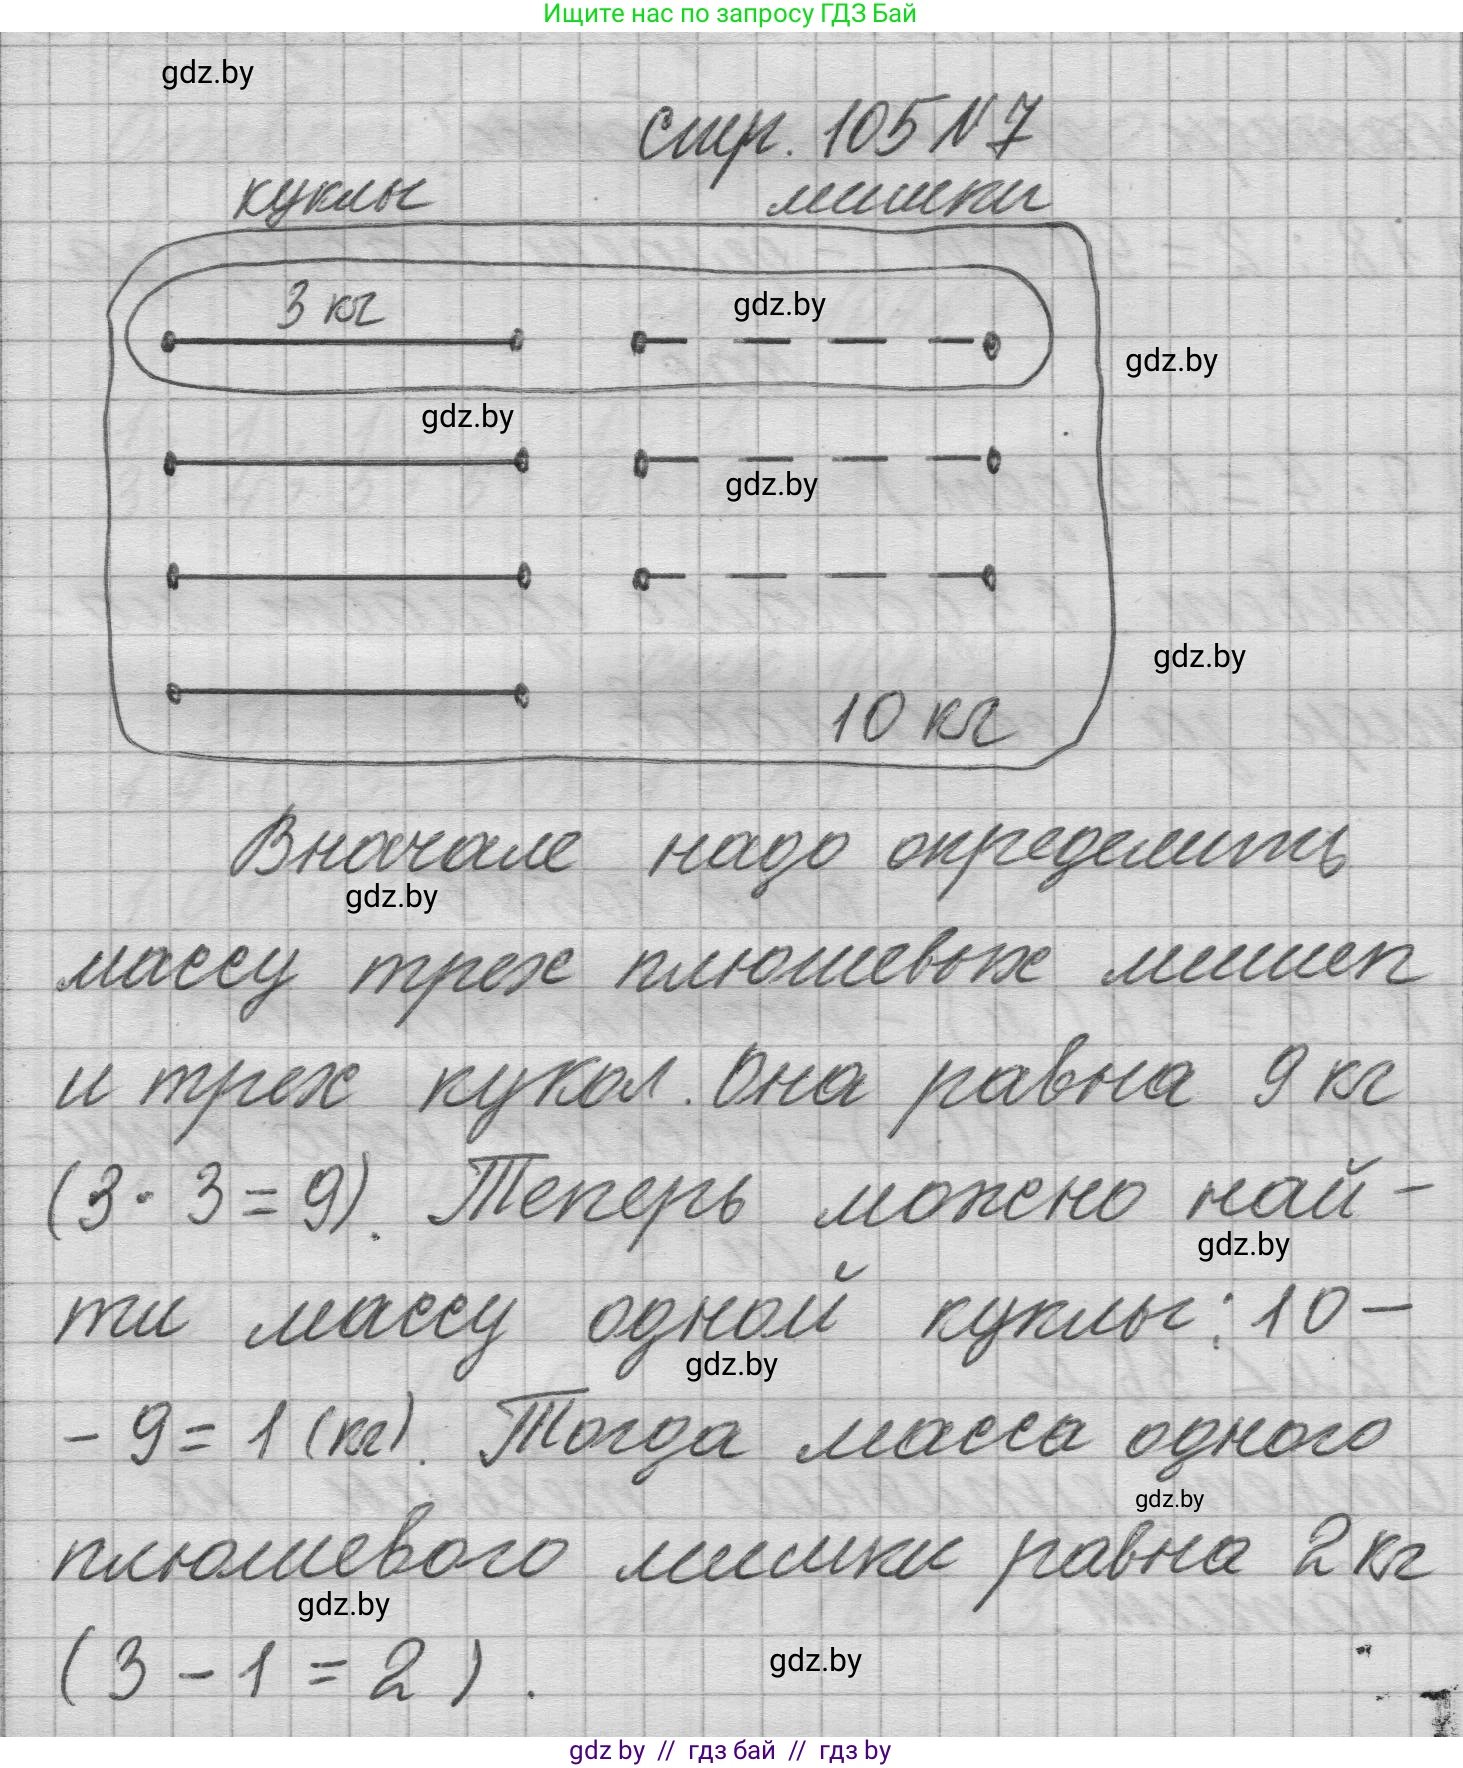 Ищите нас по запросу ГДЗ Бай
gdz.by
стр. 105 N 7
куклы мишки
3 кг
gdz.by
gdz.by
gdz.by
gdz.by
gdz.by
10 кг
Вначале надо определить
gdz.by
массу трех плюшевых мишек
и трех кукол. Она равна 9 кг
(3 · 3 = 9). Теперь можно най-
gdz.by
ти массу одной куклы: 10 –
gdz.by
– 9 = 1 (кг). Тогда масса одного
gdz.by
плюшевого мишки равна 2 кг
gdz.by
(3 – 1 = 2).
gdz.by
gdz by // гдз бай // гдз by